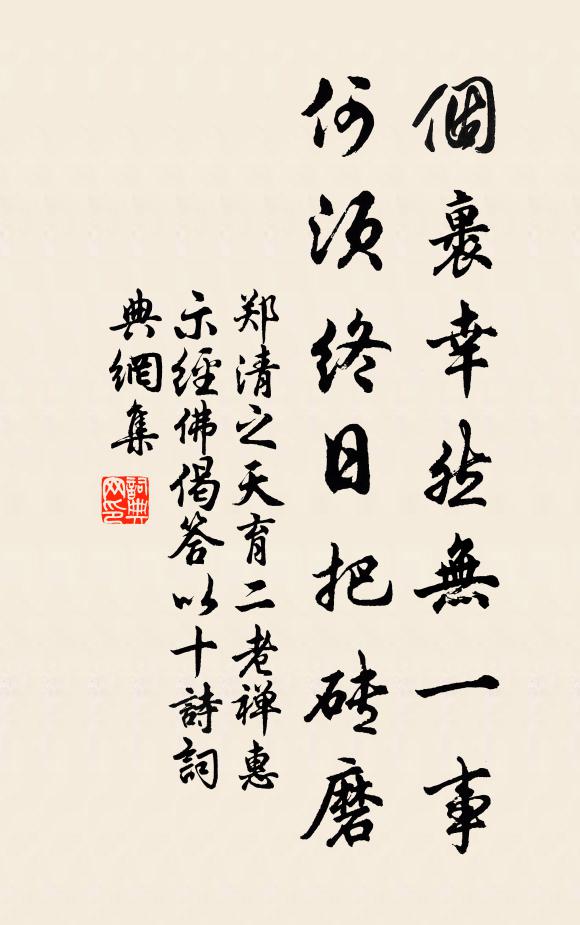 個裏幸然無一事
何須終日把磚磨
郑清之天育二老禅惠
示經佛偈答以十詩詞
典網集
詞典网印